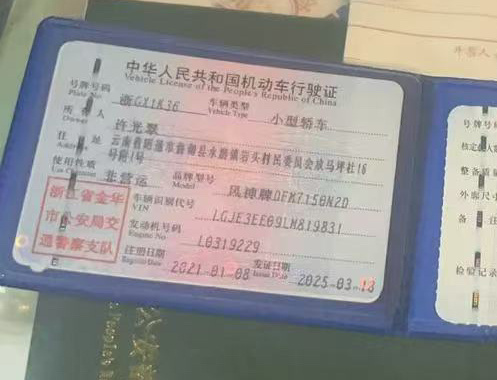 中华人民共和国机动车行驶证
Vehicle License of the People's Republic of China
号牌号码 浙GX1K36 车辆类型 小型轿车
Plate No. Vehicle Type
所有人 许光飘
Owner
住址 云南省昭通市鲁甸县水磨镇岩头村民委员会放马坪社16
Address 号附1号
使用性质 非营运 品牌型号 风神牌DFM7150N2D
Use Character Model
浙江省金华
市公安局交
通警察支队
车辆识别代号 LGJE3EE09LM819831
VIN
发动机号码 L0319229
Engine No.
注册日期 2021-01-08 发证日期 2025-03-13
Register Date Issue Date
号牌号码
核定
整备质
外廓尺
备 注
检验记录